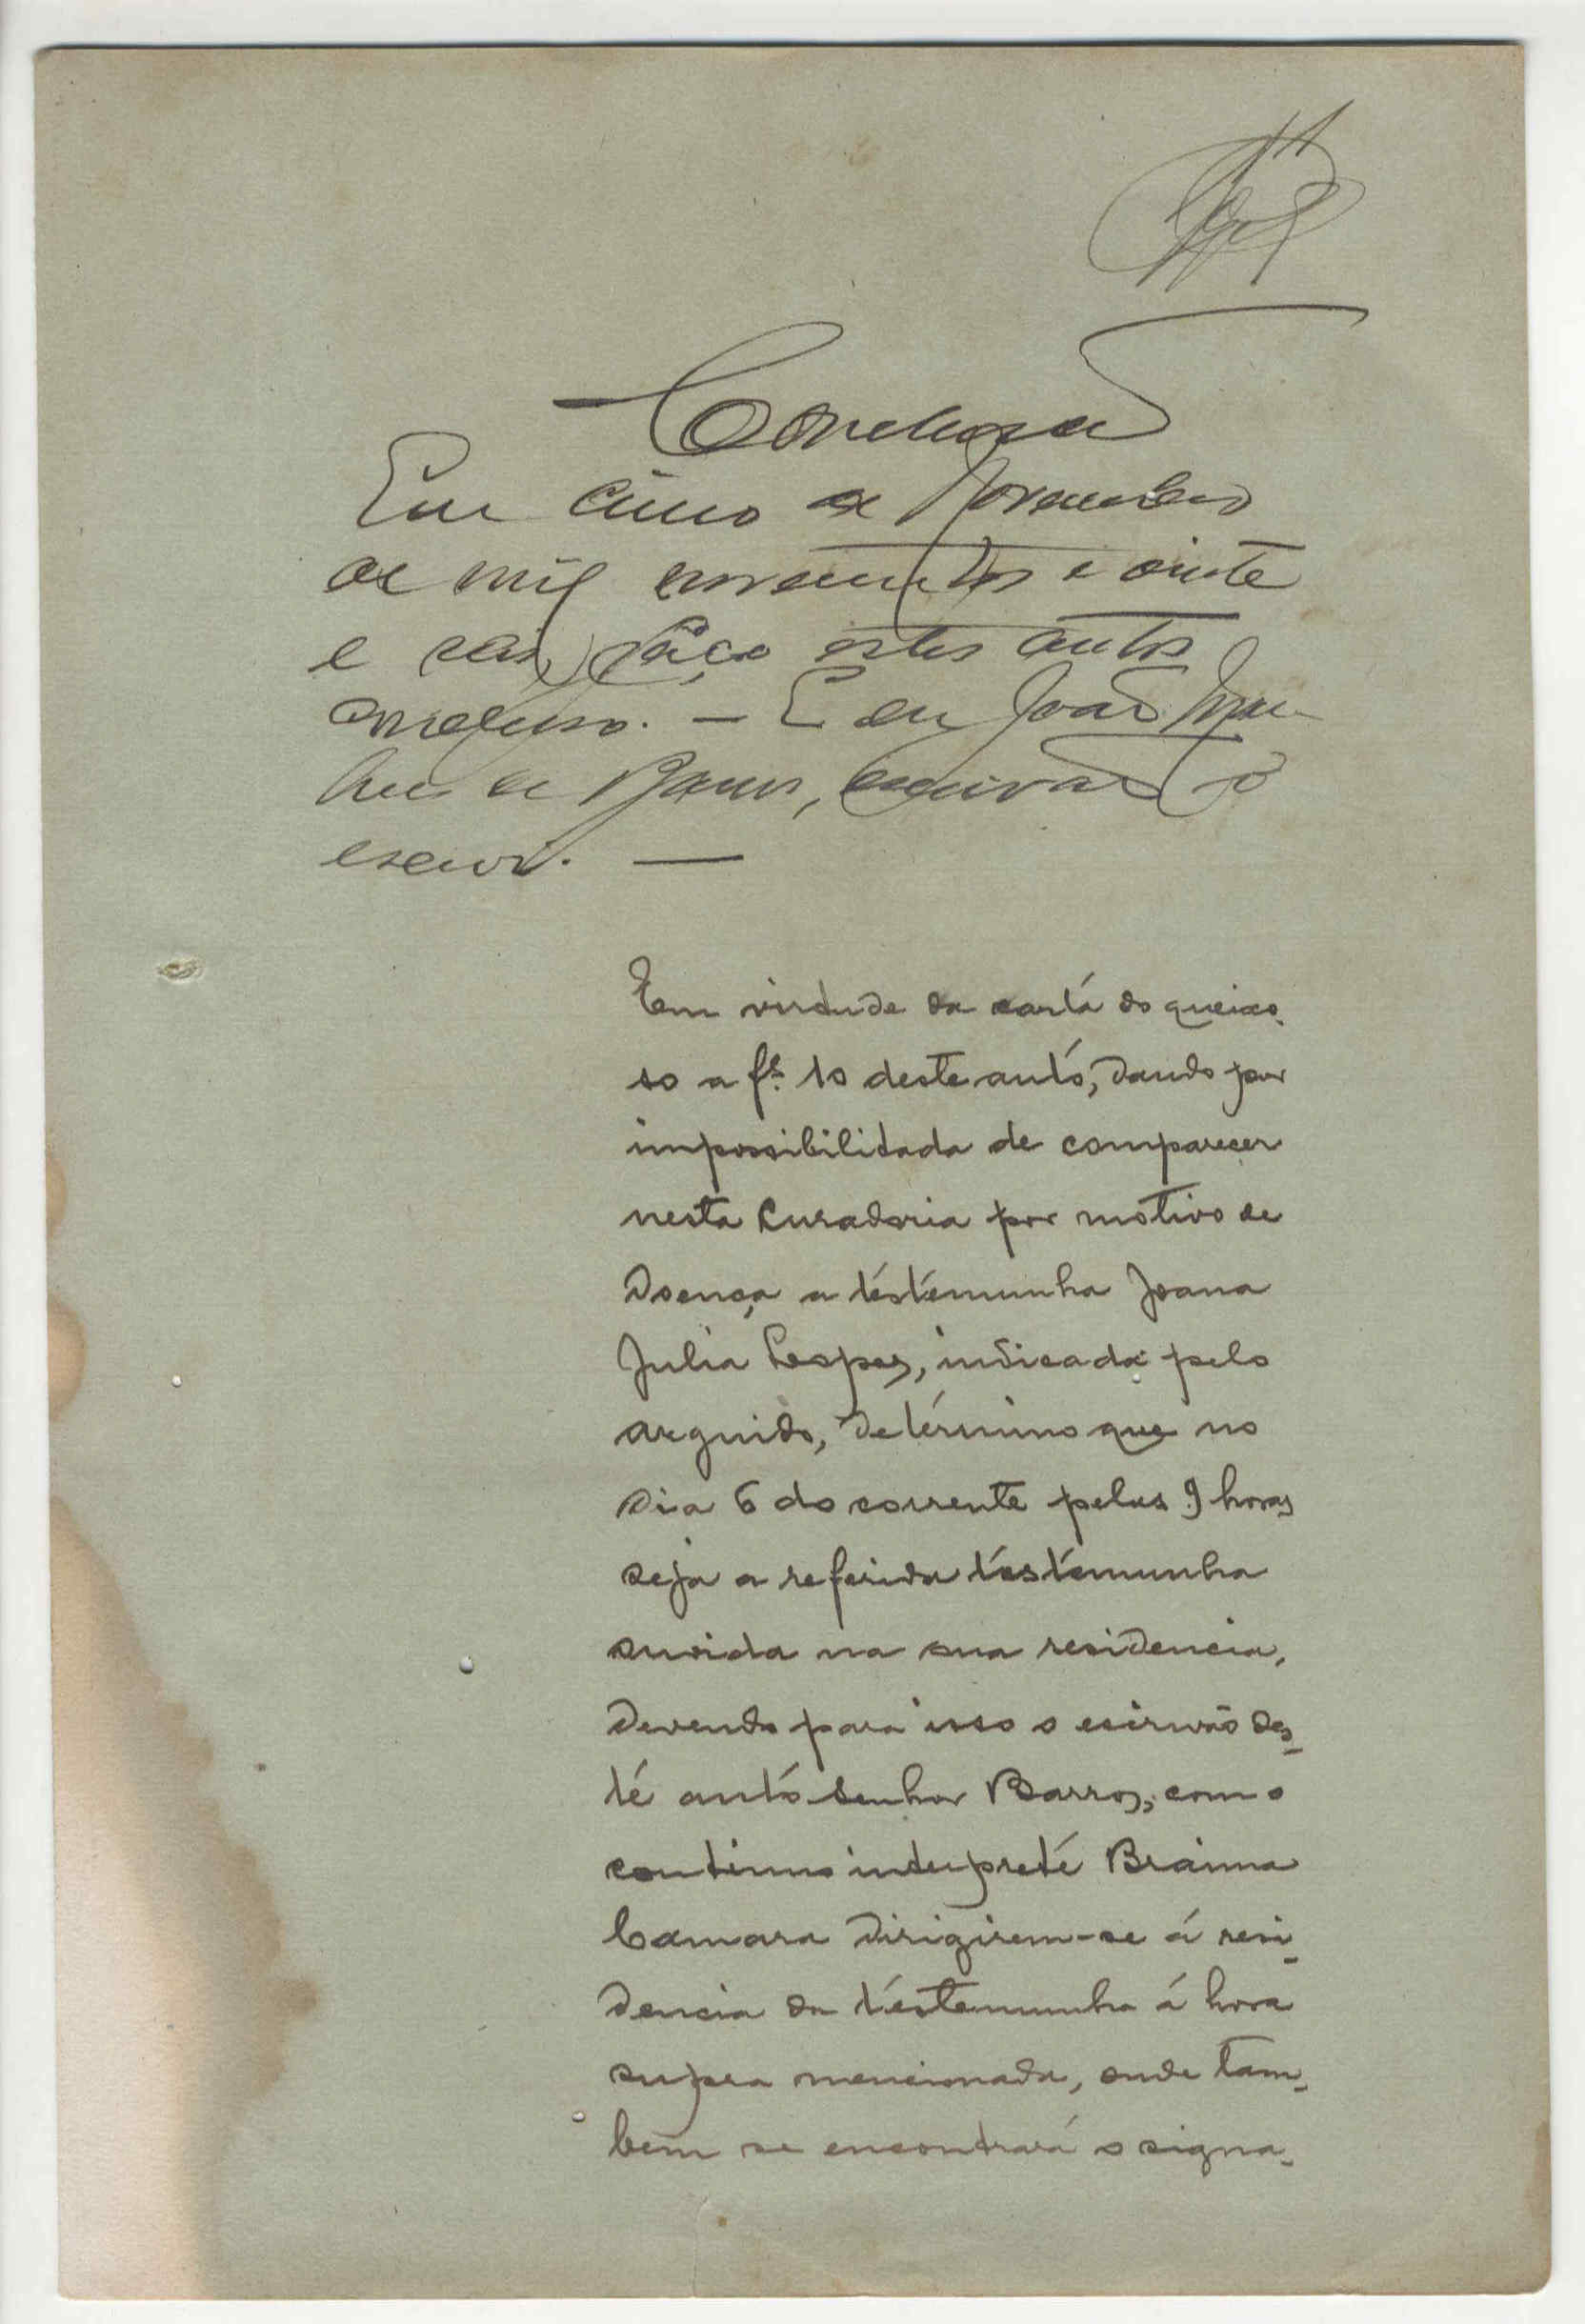 Conclusão
Em cinco de Novembro
de mil novecentos e vinte
e seis, faço estes autos
concluso. — E eu João
de Barros, escrivão o
escrevi. —
Em virtude da cartá do queixo-
so a fs. 10 deste autó, dando por
impossibilitada de comparecer
nesta Curadoria por motivo de
doença a téstémunha Joana
Julia Lopes, indicada pelo
arguido, detérmino que no
dia 6 do corrente pelas 9 horas
seja a referida téstémunha
ouvida na sua residencia,
devendo para isso o escrivão des-
té autó senhor Barros, com o
continuo intérpreté Brainna
Camara dirigirem-se á resi-
dencia da téstemunha á hora
supra mencionada, onde tam-
bem se encontrará o signa-